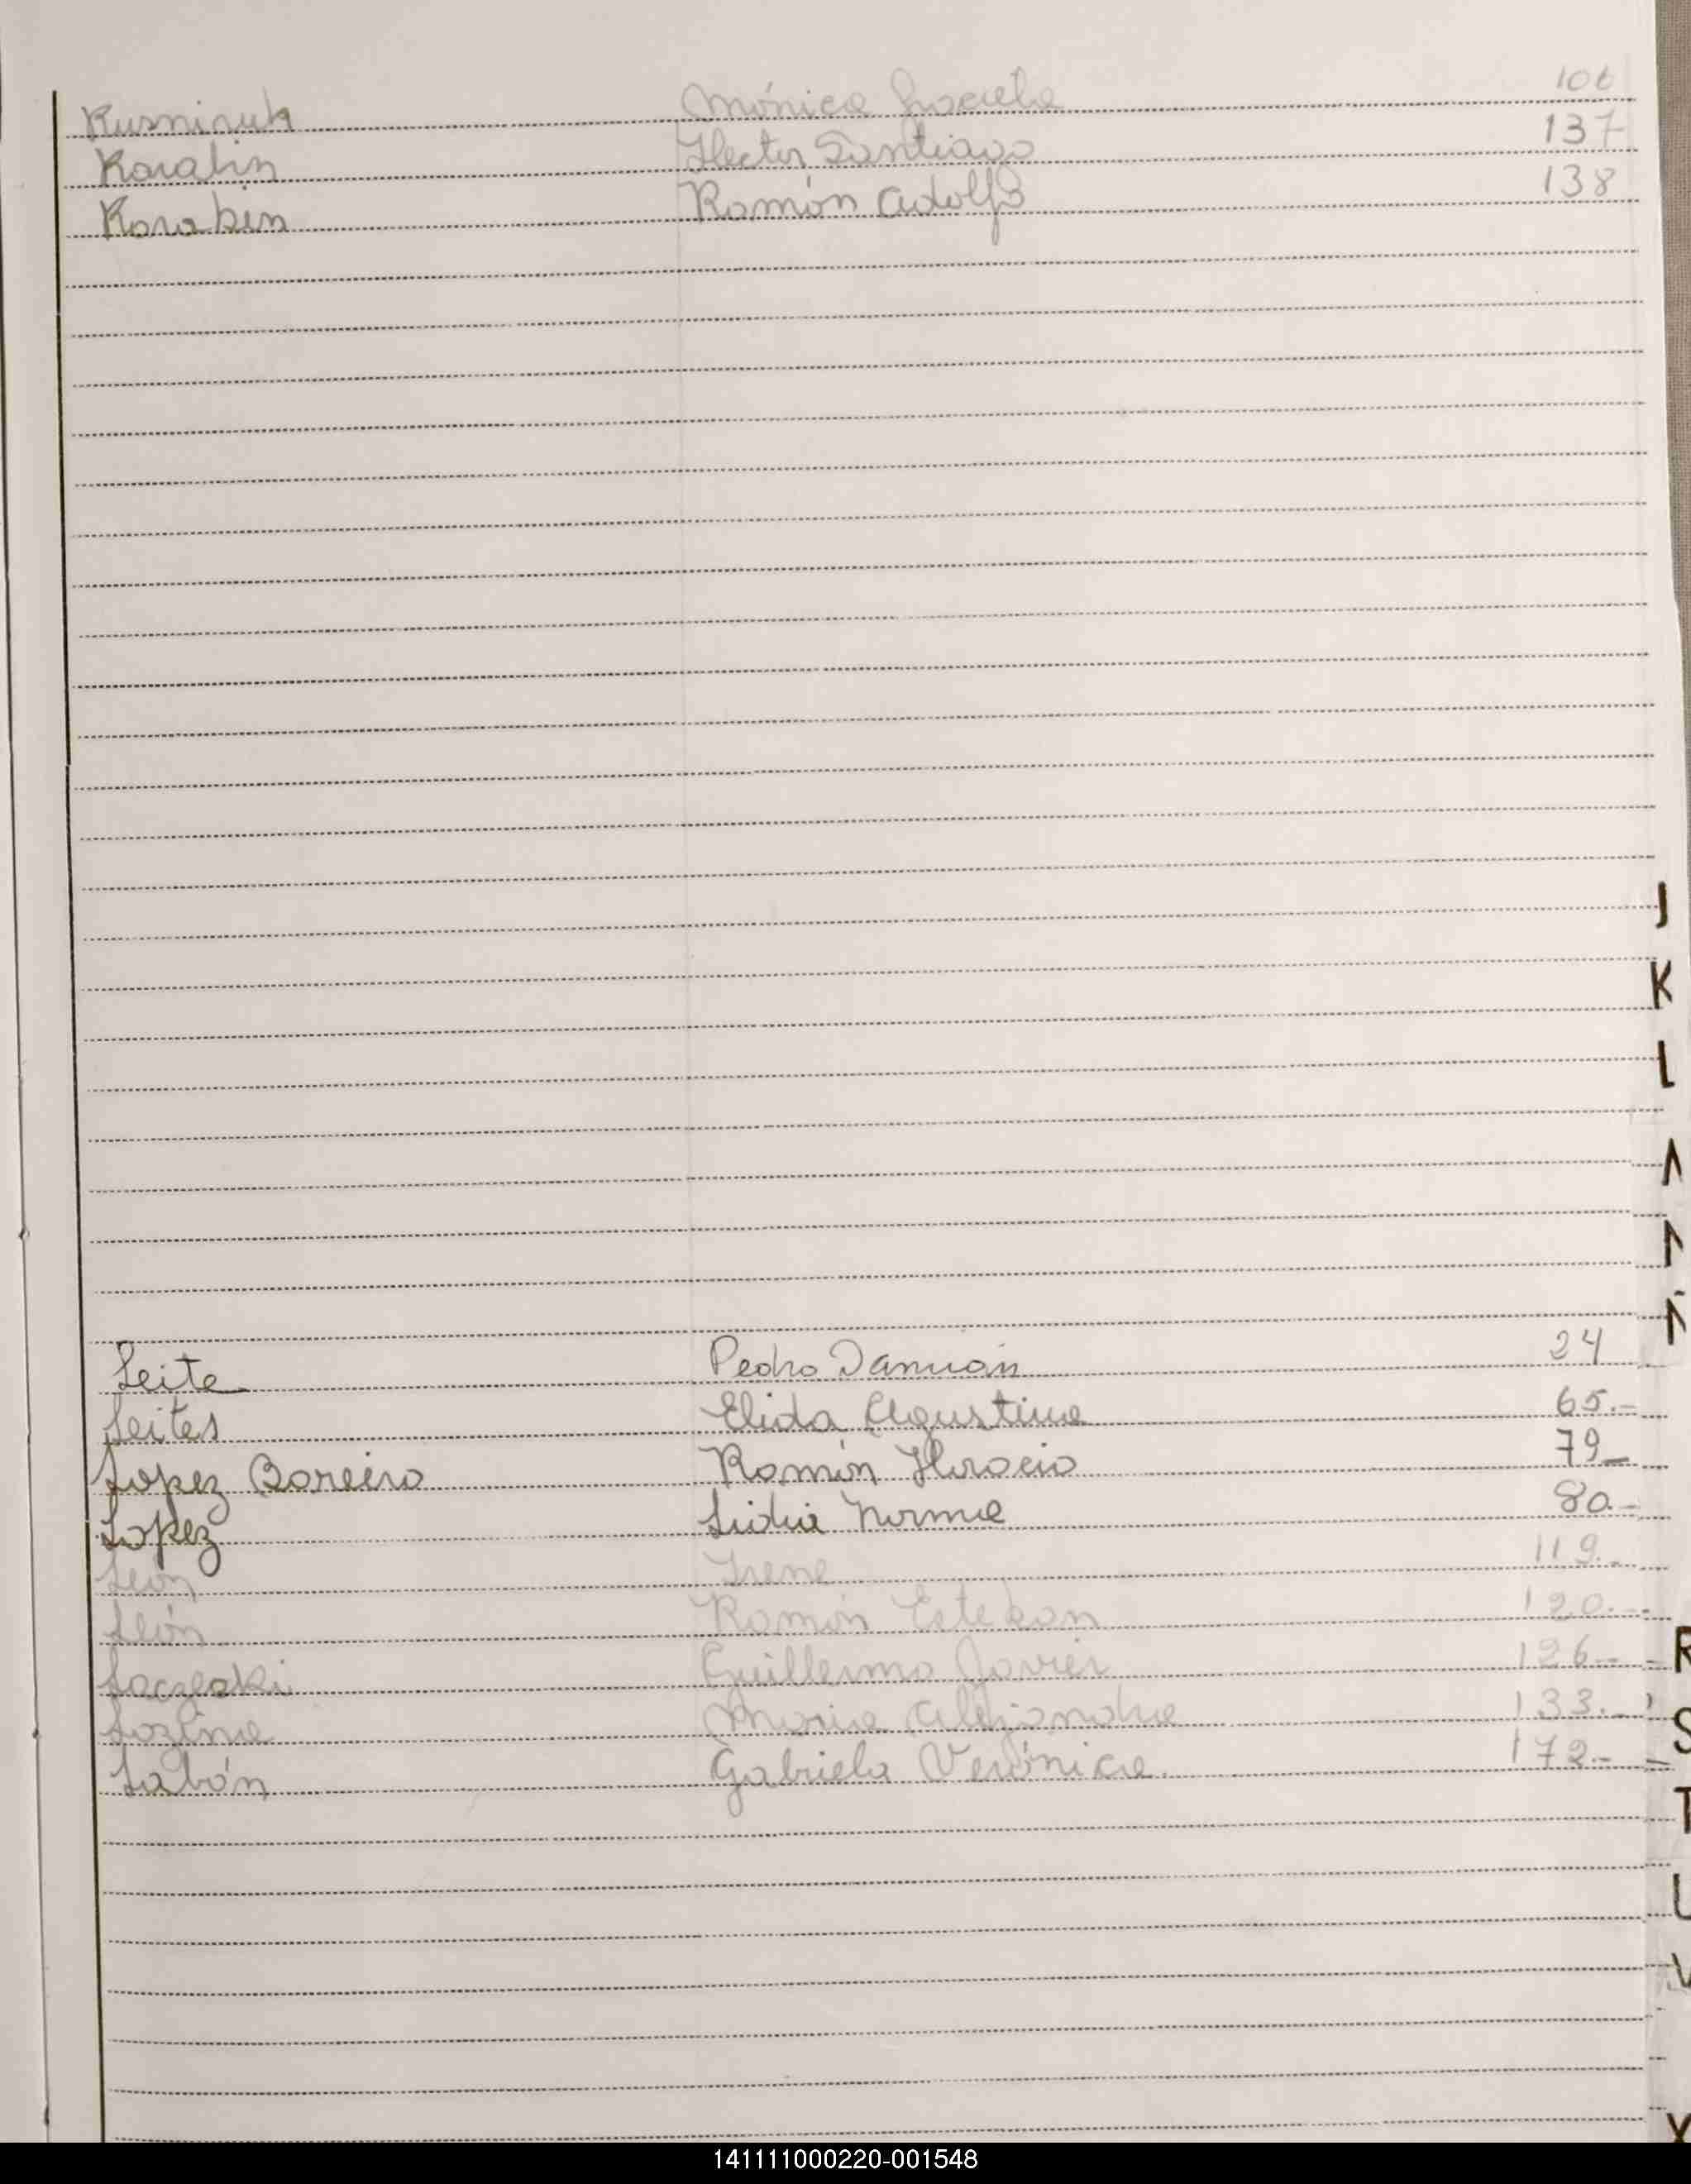 Kusminuk Mónica Graciela 106
Karabin Hector Santiago 137
Karabin Ramón Adolfo 138
J
K
L
Leite Pedro Damián 24
Leites Elida Agustina 65.-
Lopez Boreiro Ramón Horacio 79-
Lopez Lidia Norma 80.-
León Irene 119.-
León Ramón Esteban 120.-
Guillermo Javier 126.-
R
María Alejandra 133.-
S
Labón Gabriela Verónica. 172.-
T
U
V
X
141111000220-001548